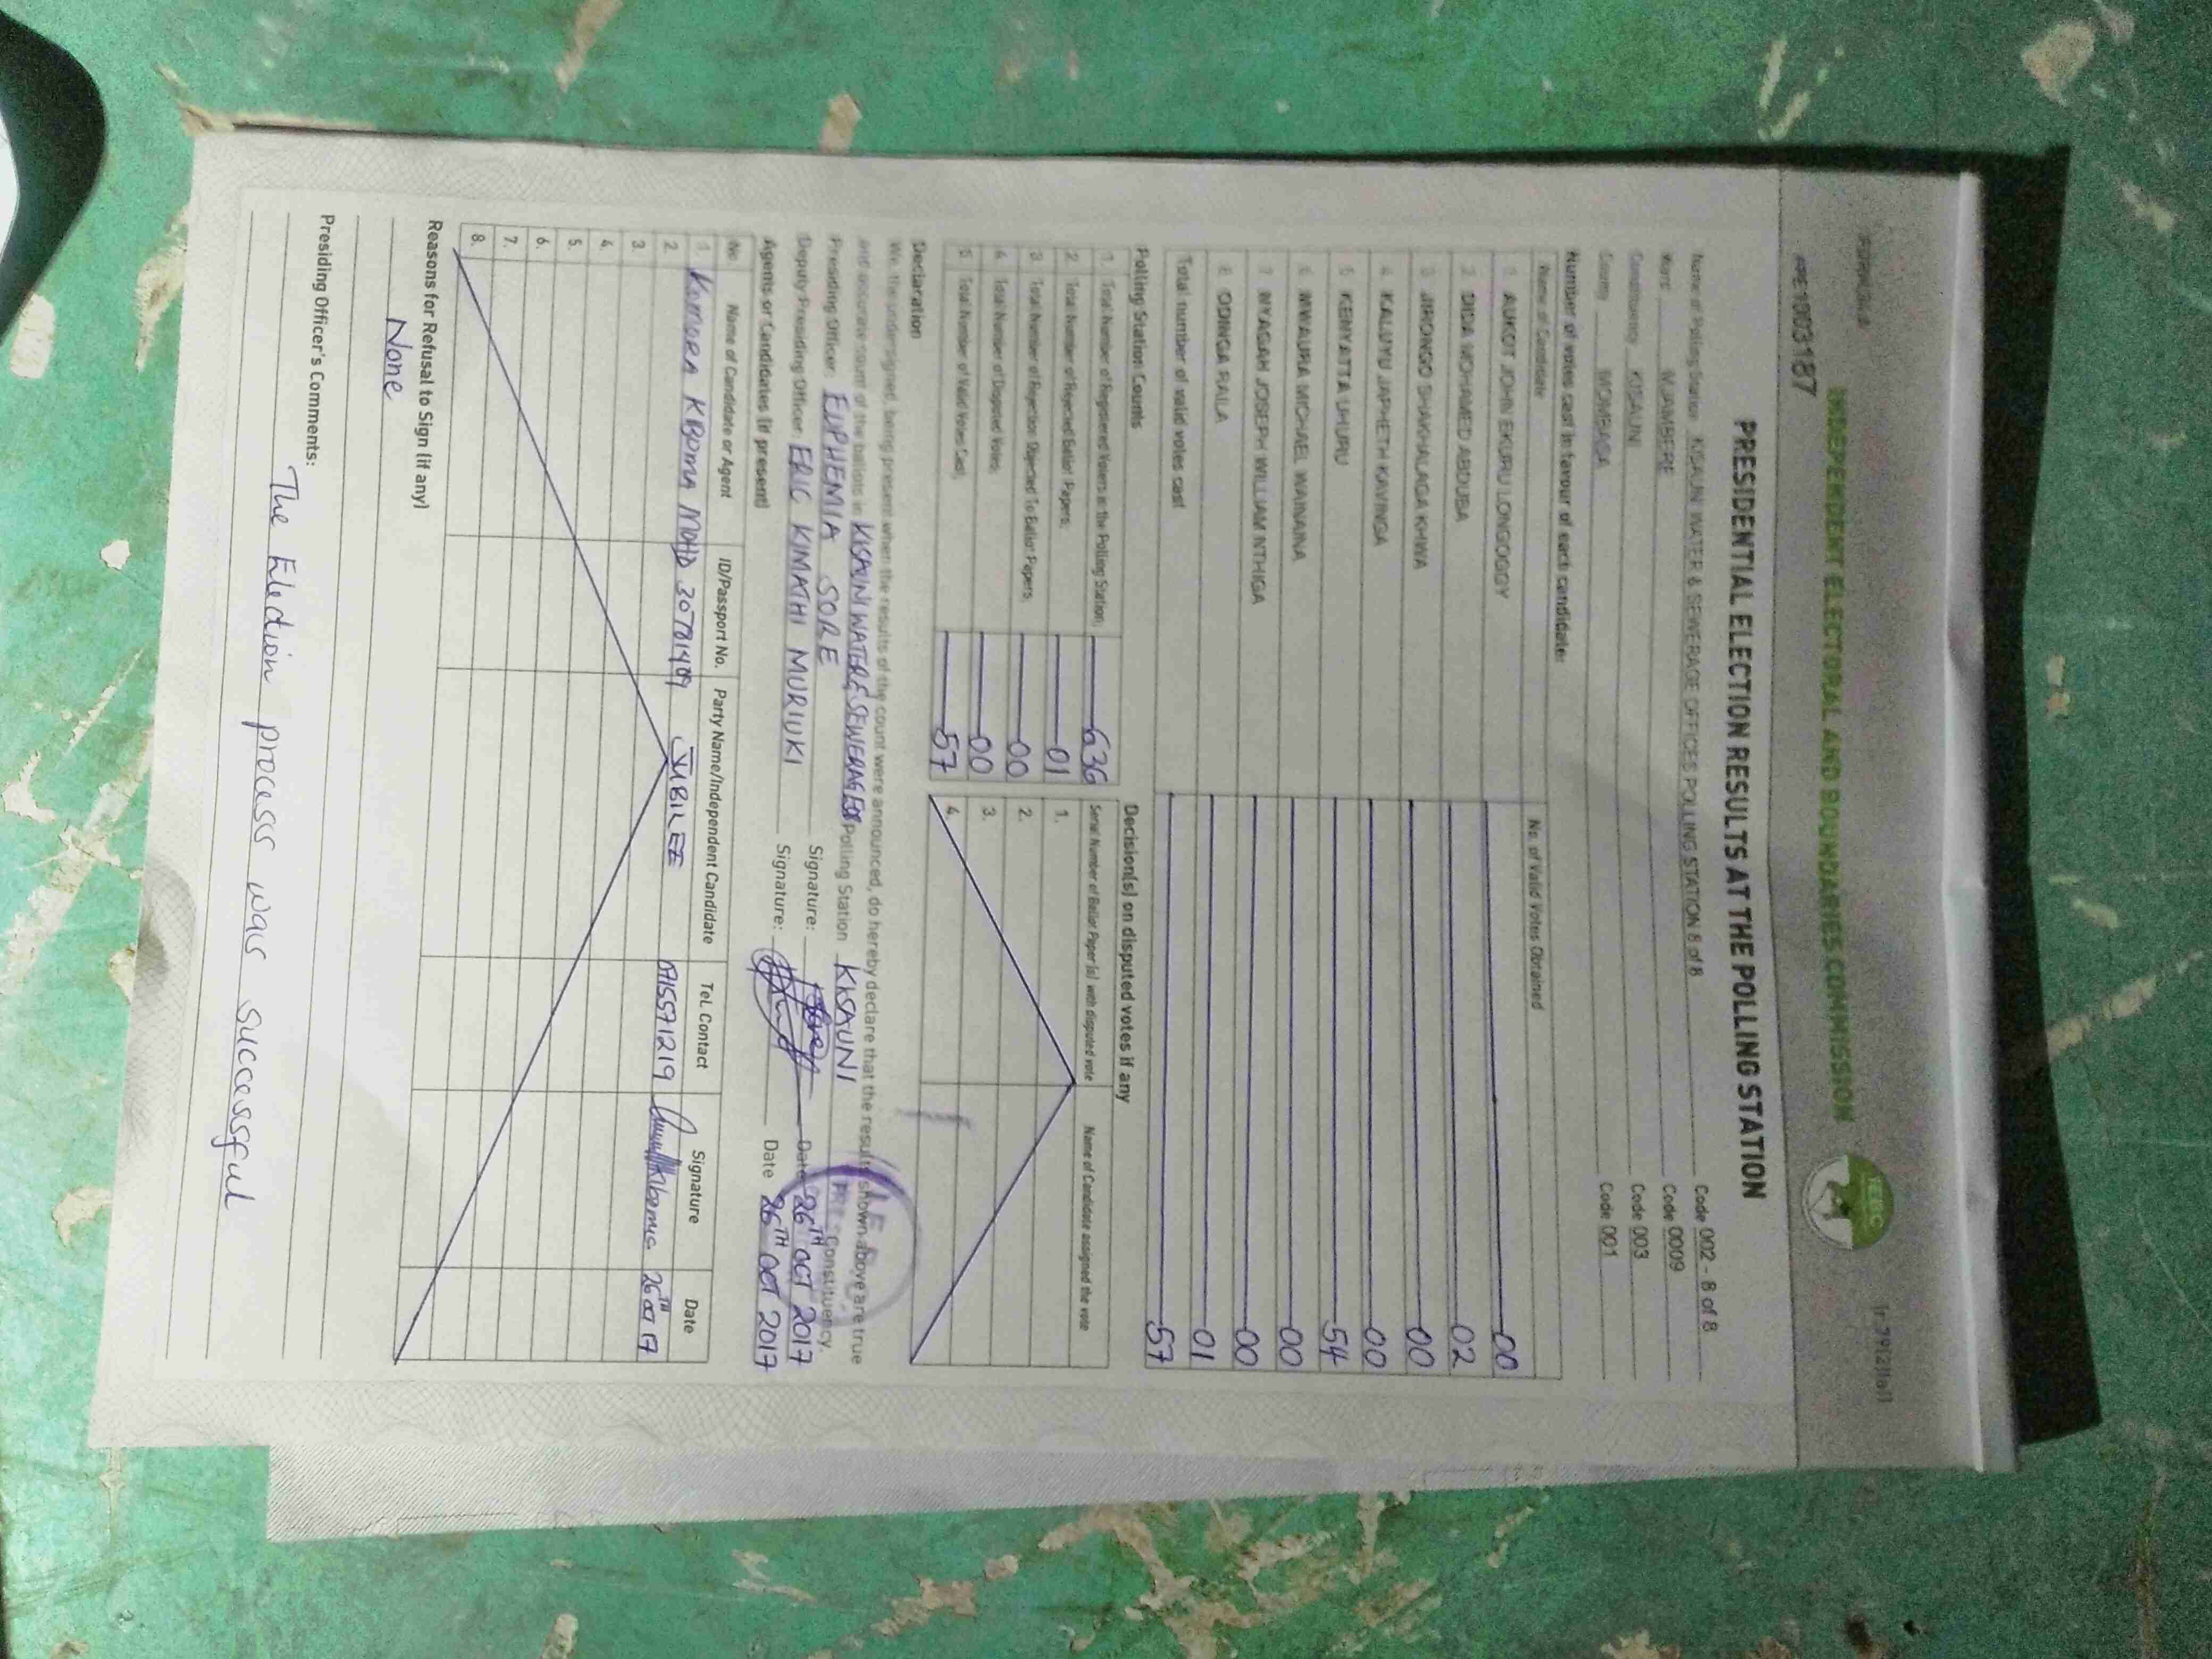 FORM 34A
PPE1003187
INDEPENDENT ELECTORAL AND BOUNDARIES COMMISSION
IEBC
PRESIDENTIAL ELECTION RESULTS AT THE POLLING STATION
Name of Polling Station KISAUNI WATER & SEWERAGE OFFICES POLLING STATION 8 of 8 Code 002 - 8 of 8
Ward MJAMBERE Code 0009
Constituency KISAUNI Code 003
County MOMBASA Code 001
Number of votes cast in favour of each candidate:
Name of Candidate No. of Valid Votes Obtained
1 AUKOT JOHN EKURU LONGOGGY 00
2 DIDA MOHAMED ABDUBA 02
3 JIRONGO SHAKHALAGA KHWA 00
4 KALUYU JAPHETH KAVINGA 00
5 KENYATTA UHURU 54
6 MWAURA MICHAEL WAINAINA 00
7 NYAGAH JOSEPH WILLIAM NTHIGA 00
8 ODINGA RAILA 01
Total number of valid votes cast 57
Polling Station Counts
1. Total Number of Registered Voters in the Polling Station; 636
2. Total Number of Rejected Ballot Papers; 01
3 Total Number of Rejection Objected To Ballot Papers; 00
4 Total Number of Disputed Votes; 00
5 Total Number of Valid Votes Cast; 57
Decision(s) on disputed votes if any
Serial Number of Ballot Paper (s) with disputed vote Name of Candidate assigned the vote
1.
2.
3.
4.
Declaration
We, the undersigned, being present when the results of the count were announced, do hereby declare that the results shown above are true
and accurate count of the ballots in KISAUNI WATER & SEWERAGE Polling Station KISAUNI Constituency.
Presiding Officer: EUPHEMIA SORE Signature: Date 26TH OCT 2017
Deputy Presiding Officer: ERIC KIMATHI MURIUKI Signature: Date 26TH OCT 2017
Agents or Candidates (if present)
No Name of Candidate or Agent ID/Passport No. Party Name/Independent Candidate Tel. Contact Signature Date
1 MOHD JUBILEE 0715571219 26TH OCT 17
2.
3.
4.
5.
6.
7.
8.
Reasons for Refusal to Sign (if any)
None
Presiding Officer's Comments:
The Election process was successful